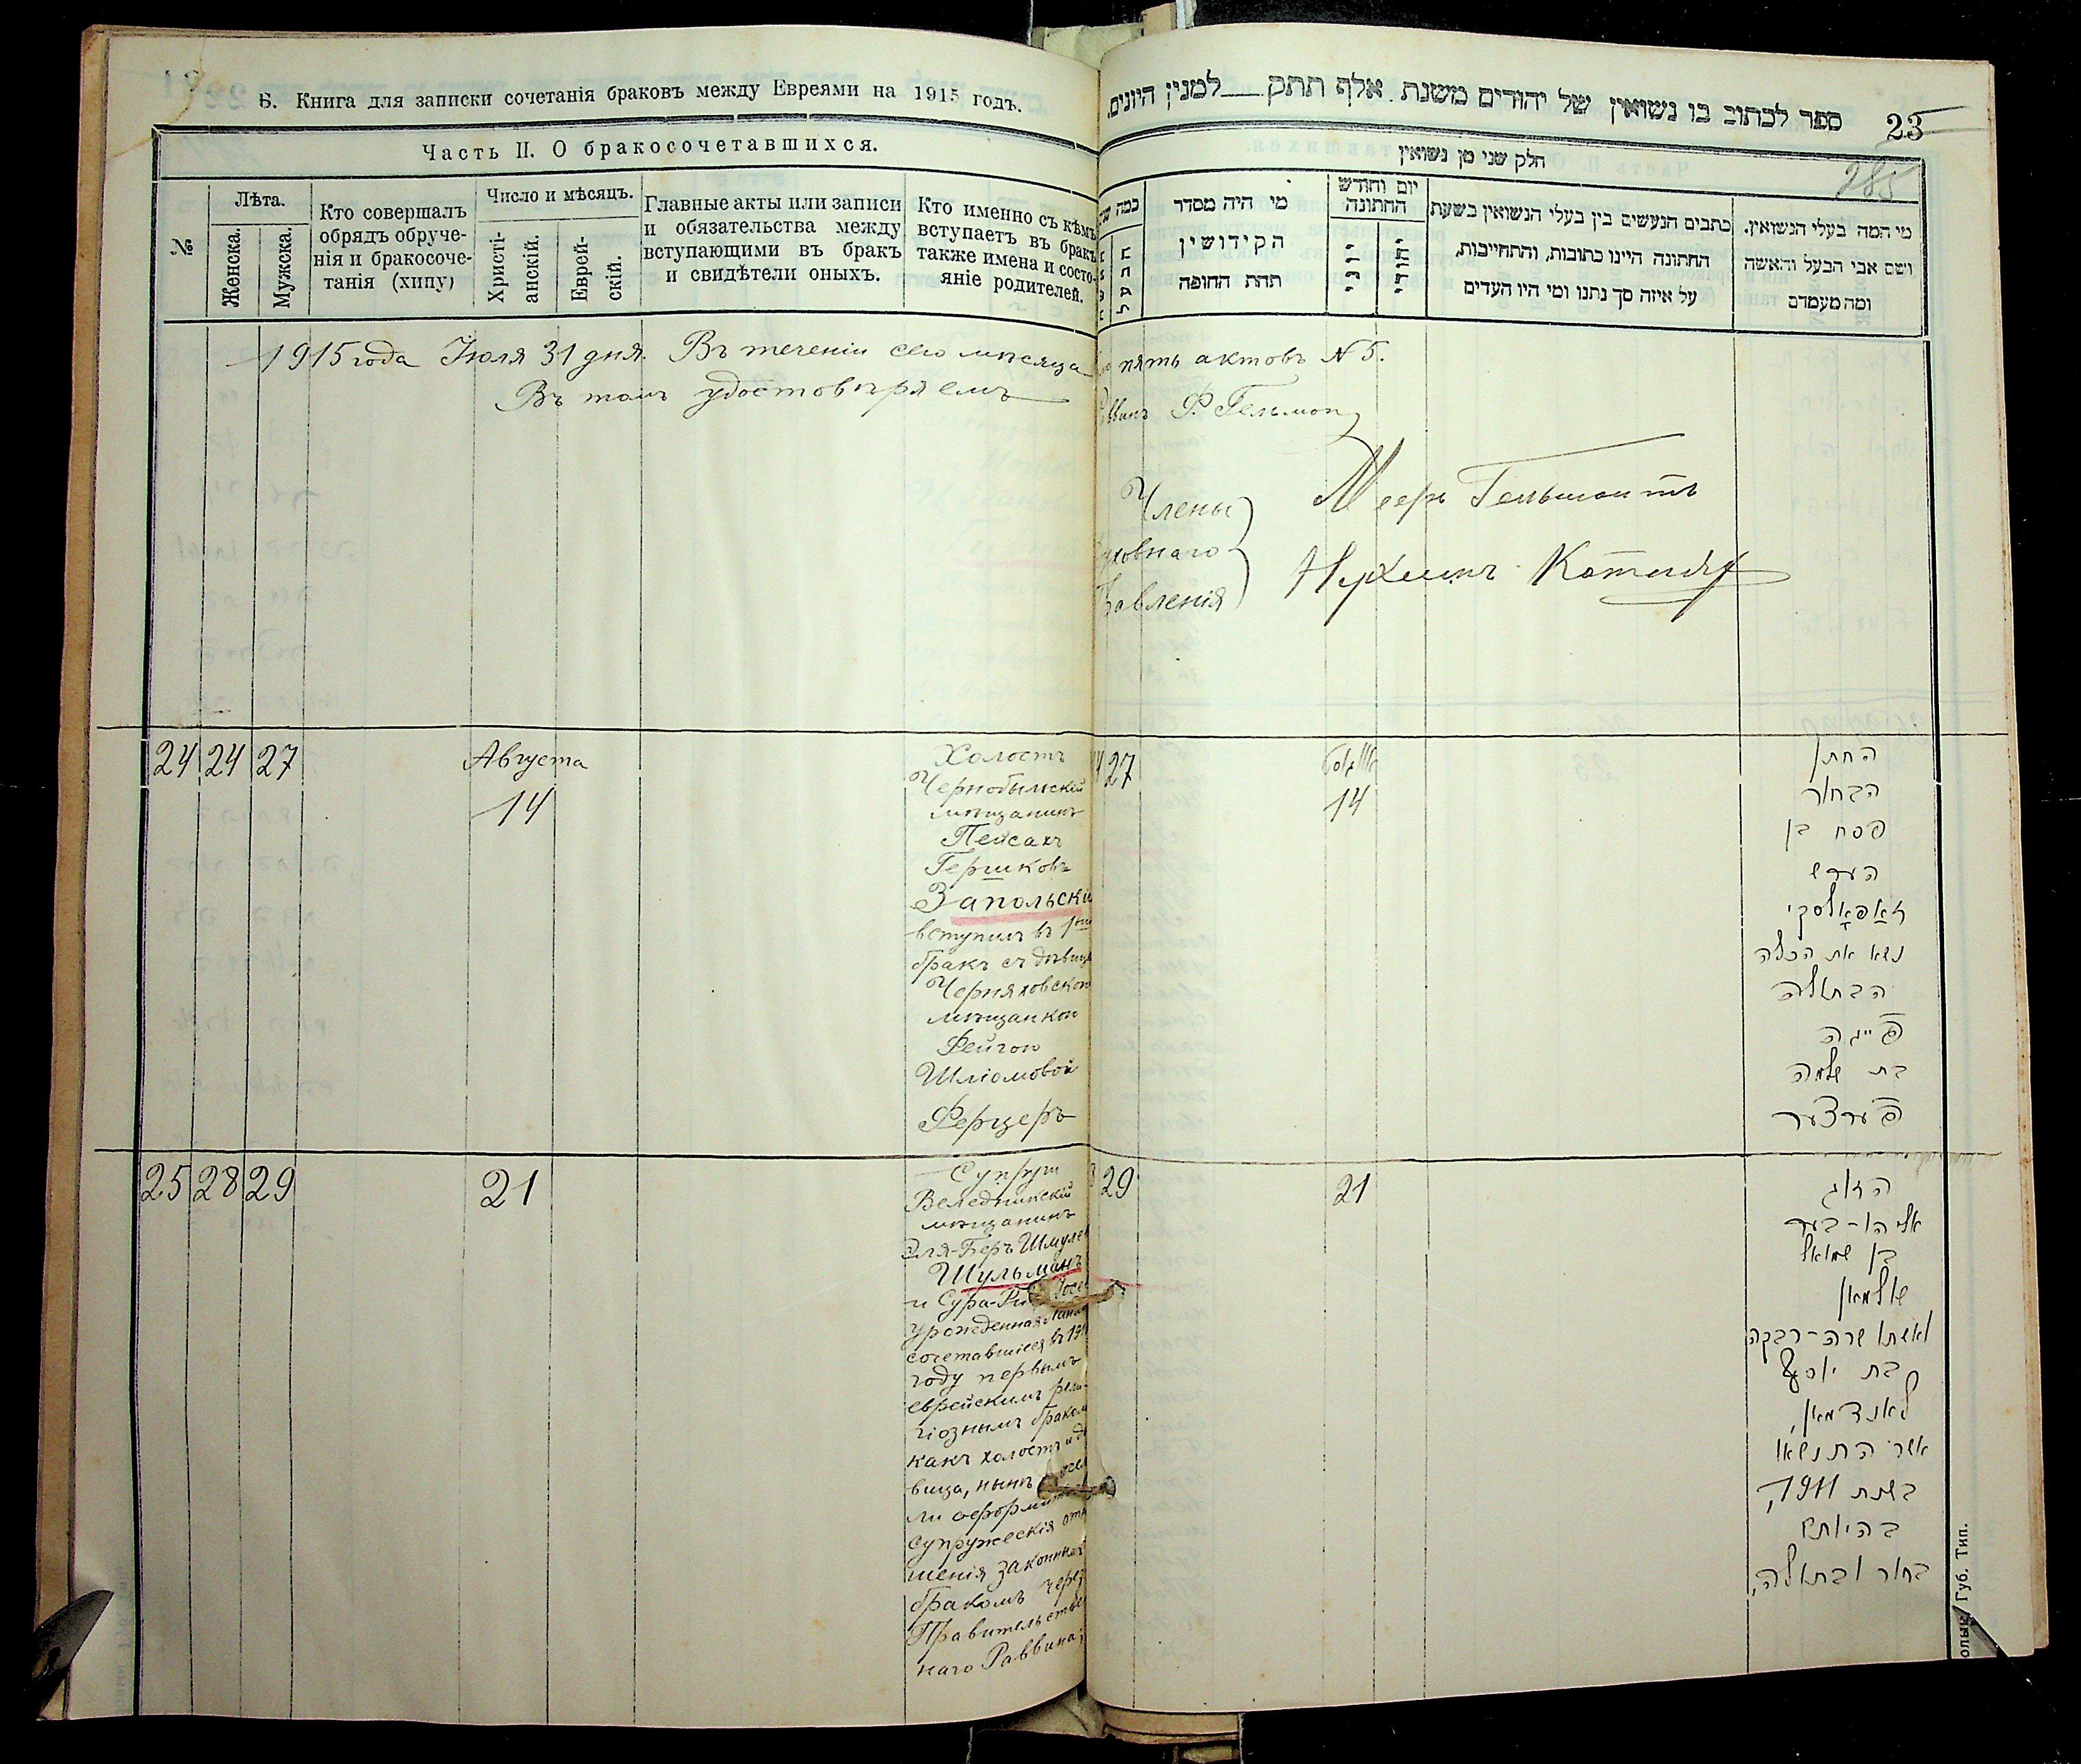 Б. Книга для записки сочетанія браковъ между Евреями на 1915 годъ.
Часть II. О бракосочетавшихся.
№
Лѣта.
Женска.
Мужска.
Кто совершалъ
обрядъ обруче-
нія и бракосоче-
танія (хипу)
Число и мѣсяцъ.
Христі-
анскій.
Еврей-
скій.
Главные акты или записи
и обязательства между
вступающими въ бракъ
и свидѣтели оныхъ.
Кто именно съ кѣмъ
вступаетъ въ бракъ
также имена и состо-
яніе родителей.
1915 года Іюля 31 дня. Въ теченіи сего мѣсяца
Въ томъ удостовѣряемъ
24 24 27
Августа
14
Холостъ
Чернобыльскій
мѣщанинъ
Пейсахъ
Гершковъ
Запольскій
вступилъ въ 1ый
бракъ съ дѣвицей
Черняховскою
мѣщанкою
Фейгою
Шліомовой
Ферцеръ
25 28 29
21
Супруги
Веледникскій
мѣщанинъ
Эля-Беръ Шмулев
Шульманъ
и Сура-Ри Іосе
урожденная
сочетавшіеся въ 191
году первымъ
еврейскимъ рели-
гіознымъ бракомъ
какъ холостъ и дѣ
вица, нынѣ
ли оформить
супружескія отно
шенія законнымъ
бракомъ через
Правительствен
наго Раввина;
ספר לכתוב בו נשואין של יהודים משנת אלף תתק למנין היונים.
23
285
חלק שני מן נשואין
כמה
מי היה מסדר
הקידושין
תחת החופה
יום וחודש
החתונה
כתבים הנעשים בין בעלי הנשואין בשעת
החתונה היינו כתובות, והתחייבות,
על איזה סך נתנו ומי היו העדים
מי המה בעלי הנשואין.
ושם אבי הבעל והאשה
ומה מעמדם
пять актовъ № 5.
Ф. Гельман
Члены
ховнаго
вленія
Мееръ Гельман
27
14
החתן
הבחור
פסח בן
הערש
זאפאלסקי
נשא את הכלה
הבתולה
פייגה
בת שלמה
פערצער
29
21
הזוג
אליהו-בער
בן שמואל
שולמאן
ואשתו שרה-רבקה
בת יוסף
לאנדמאן,
אשר התנשאו
בשנת 1911,
בהיותם
בחור ובתולה,
Губ. Тип.